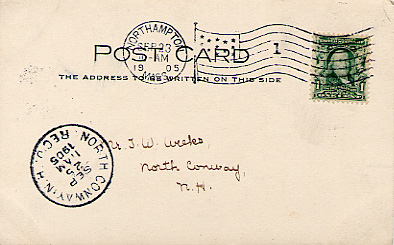 NORTHAMPTON
SEP 23
AM
19 05
MASS.
1
POST CARD
THE ADDRESS TO BE WRITTEN ON THIS SIDE
J. W. Weeks,
North Conway,
N. H.
NORTH CONWAY, N.H.
SEP
1905
REC'D.